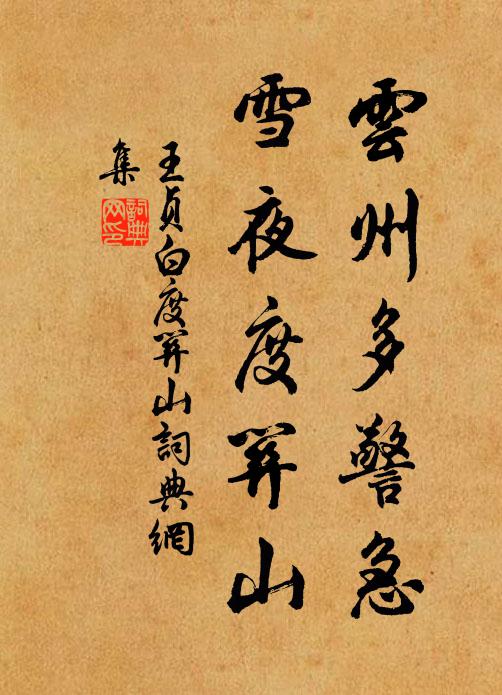 雲州多警急
雪夜度關山
王貞白度關山詞典網
集
詞典網印